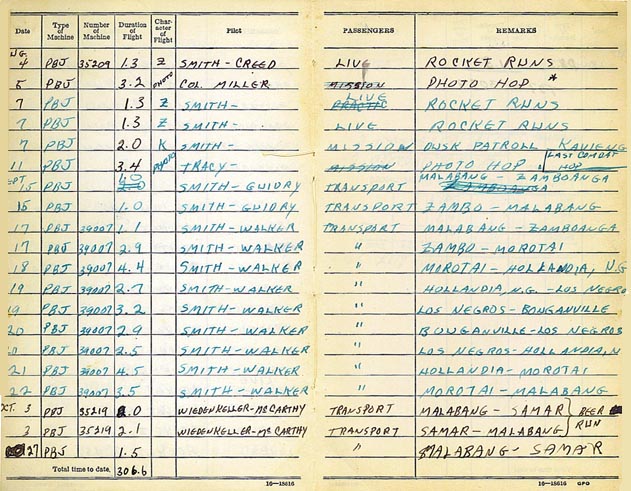 Date Type of Machine Number of Machine Duration of Flight Character of Flight Pilot PASSENGERS REMARKS
4 PBJ 35209 1.3 Z SMITH-CREED LIVE ROCKET RUNS
5 PBJ 3.2 PHOTO COL. MILLER MISSION PHOTO HOP *
7 PBJ 1.3 Z SMITH- PRACTIC LIVE ROCKET RUNS
7 PBJ 1.3 Z SMITH- LIVE ROCKET RUNS
7 PBJ 2.0 K SMITH- MISSION DUSK PATROLL KAVIENG
11 PBJ 3.4 PHOTO TRACY- MISSION PHOTO HOP LAST COMBAT HOP
SEPT 15 PBJ 1.0 SMITH-GUIDRY TRANSPORT MALABANG - ZAMBOANGA
15 PBJ 1.0 SMITH-GUIDRY TRANSPORT ZAMBO - MALABANG
17 PBJ 39007 1.1 SMITH-WALKER TRANSPORT MALABANG - ZAMBOANGA
17 PBJ 39007 2.9 SMITH-WALKER " ZAMBO - MOROTAI
18 PBJ 39007 4.4 SMITH-WALKER " MOROTAI-HOLLANDIA, N.G
19 PBJ 39007 2.7 SMITH-WALKER " HOLLANDIA, N.G. -LOS NEGRO
19 PBJ 39007 3.2 SMITH-WALKER " LOS NEGROS-BOUGANVILLE
20 PBJ 39007 2.9 SMITH-WALKER " BOUGANVILLE-LOS NEGROS
PBJ 39007 2.5 SMITH-WALKER " LOS NEGROS-HOLLANDIA, N
21 PBJ 39007 4.5 SMITH-WALKER " HOLLANDIA-MOROTAI
22 PBJ 39007 3.5 SMITH-WALKER " MOROTAI-MALABANG
OCT. 3 PBJ 35219 2.0 WIEDENKELLER-MCCARTHY TRANSPORT MALABANG - SAMAR BEER
3 PBJ 35219 2.1 WIEDENKELLER-MCCARTHY TRANSPORT SAMAR-MALABANG RUN
27 PBJ 1.5 " MALABANG - SAMAR
Total time to date, 306.6
16-15616 16-15616 GPO